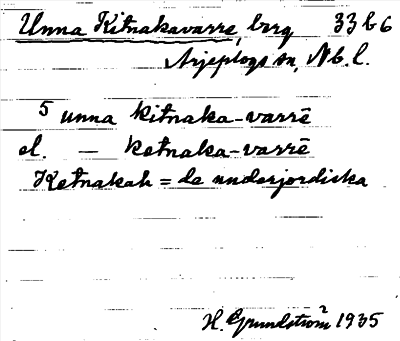 Unna Kitnakavarre, berg 33 b 6
Arjeplogs sn, Nb. l.
5 unna kitnaka-varrē
el. — ketnaka-varrē
Ketnakah = de underjordiska
H. Grundström 1935